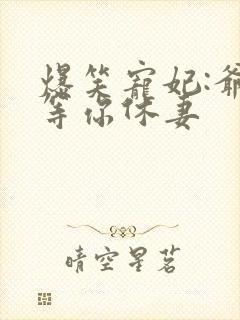 爆笑寵妃:爺
等你休妻
晴空星茗